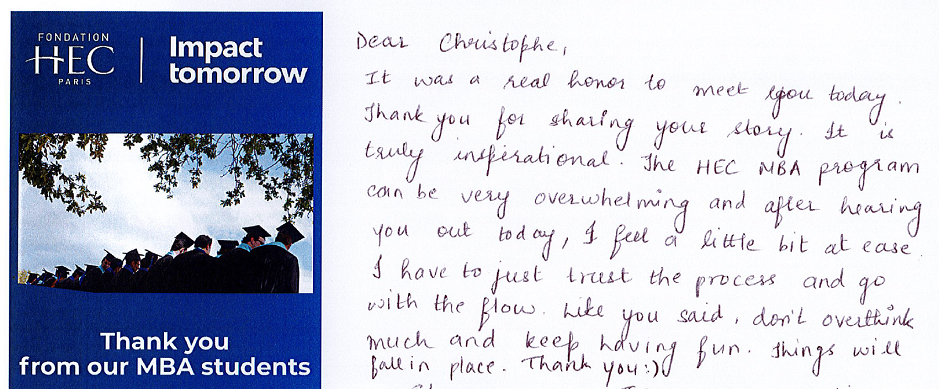 FONDATION
HEC
PARIS
Impact
tomorrow
Thank you
from our MBA students
Dear Christophe,
It was a real honor to meet you today.
Thank you for sharing your story. It is
truly inspirational. The HEC MBA program
can be very overwhelming and after hearing
you out today, I feel a little bit at ease.
I have to just trust the process and go
with the flow. Like you said, don't overthink
much and keep having fun. Things will
fall in place. Thank you :)